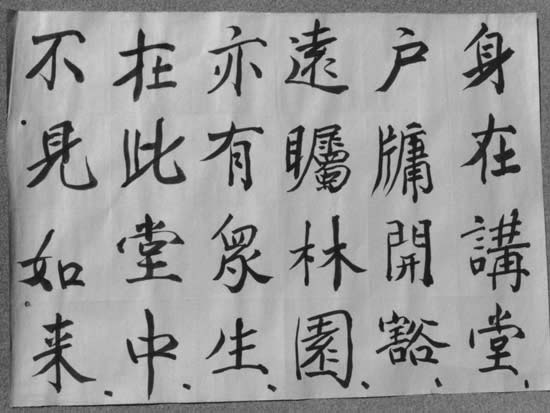 身在講堂、
戶牖開豁、
遠矚林園、
亦有眾生、
在此堂中、
不見如来、